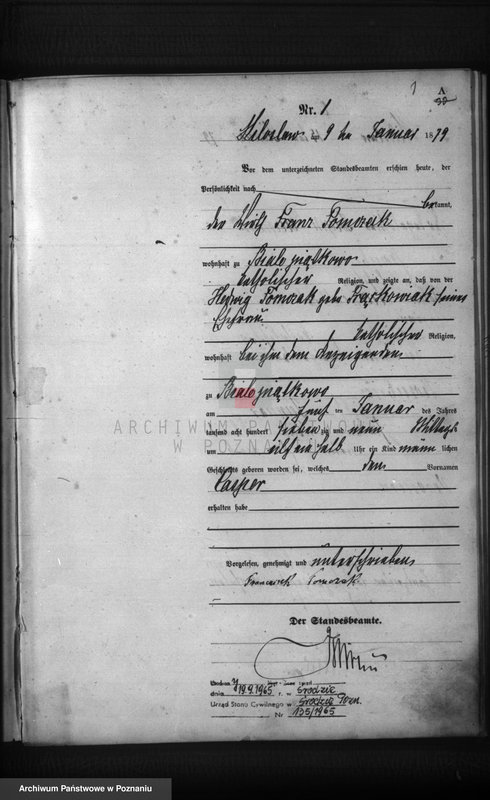 1
A
Nr. 1
Miloslaw am 9 ten Januar 1879
Vor dem unterzeichneten Standesbeamten erschien heute, der
Persönlichkeit nach bekannt,
der Wirth Franz Tomczak
wohnhaft zu Bialopiątkowo
katholischer Religion, und zeigte an, daß von der
Hedwig Tomczak geb. Frąckowiak seiner
Ehefrau
katholischer Religion,
wohnhaft bei ihm dem Anzeigenden
zu Bialopiątkowo
am fünf ten Januar des Jahres
tausend acht hundert siebenzig und neun Mittags
um Uhr ein Kind männlichen
Geschlechts geboren worden sei, welches den Vornamen
Casper
erhalten habe
Vorgelesen, genehmigt und unterschrieben
Franciszek Tomczak
Der Standesbeamte.
dnia 19.9.1965 r. w Środzie
Urząd Stanu Cywilnego w Środzie Pozn.
Nr 135/1965
ARCHIWUM PAŃSTWOWE
W POZNANIU
Archiwum Państwowe w Poznaniu